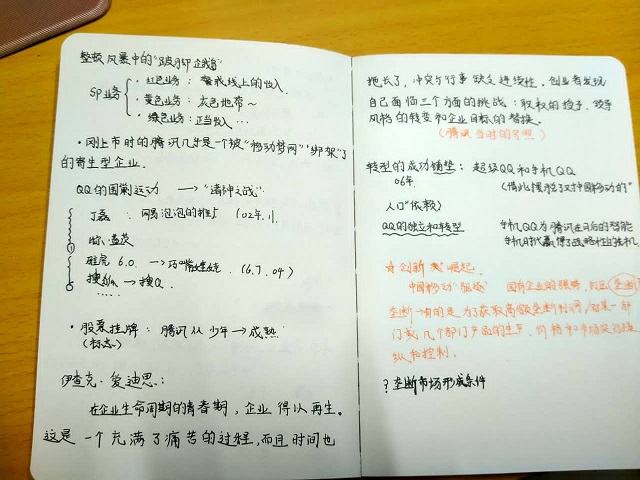 整顿风暴中的"跛脚企鹅"
SP业务
· 红色业务：警戒线上的收入
· 黄色业务：灰色地带～
· 绿色业务：正当收入…
· 刚上市时的腾讯几乎是一个被"移动梦网""绑架"了
的寄生型企业.
QQ的围剿运动 → "诸神之战"
丁磊：网易泡泡的挑战 (02年.).
新浪 6.0. → . (6.7.04)
搜狐 → 搜Q.
……
· 股票挂牌：腾讯从少年→成熟
(标志)
伊查克·爱迪思：
在企业生命周期的青春期，企业得以再生。
这是一个充满了痛苦的过程，而且时间也
拖长了，冲突与行事缺乏连续性。创业者发现
自己面临三个方面的挑战：职权的授予，领导
风格的转变和企业目标的替换。
(腾讯当时的写照)
转型的成功铺垫：超级QQ和手机QQ
06年. (借此摆脱了对中国移动的"
人口"依赖)
QQ的独立和转型 手机QQ为腾讯在日后的智能
手机时代赢得了战略性的先机
☆ 创新 崛起.
中国移动"驱逐" 国有企业的强势，
垄断有的是为了获取高额垄断利润，如某一部
门或几个部门产品的生产、价格和市场实行操
纵和控制.
? 垄断市场形成条件